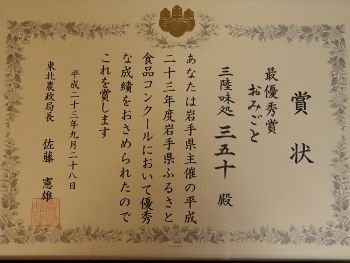 賞状
最優秀賞
おみごと
三陸味処 三五十 殿
あなたは岩手県主催の平成
二十三年度岩手県ふるさと
食品コンクールにおいて優秀
な成績をおさめられたので
これを賞します
平成二十三年九月二十八日
東北農政局長 佐藤憲雄